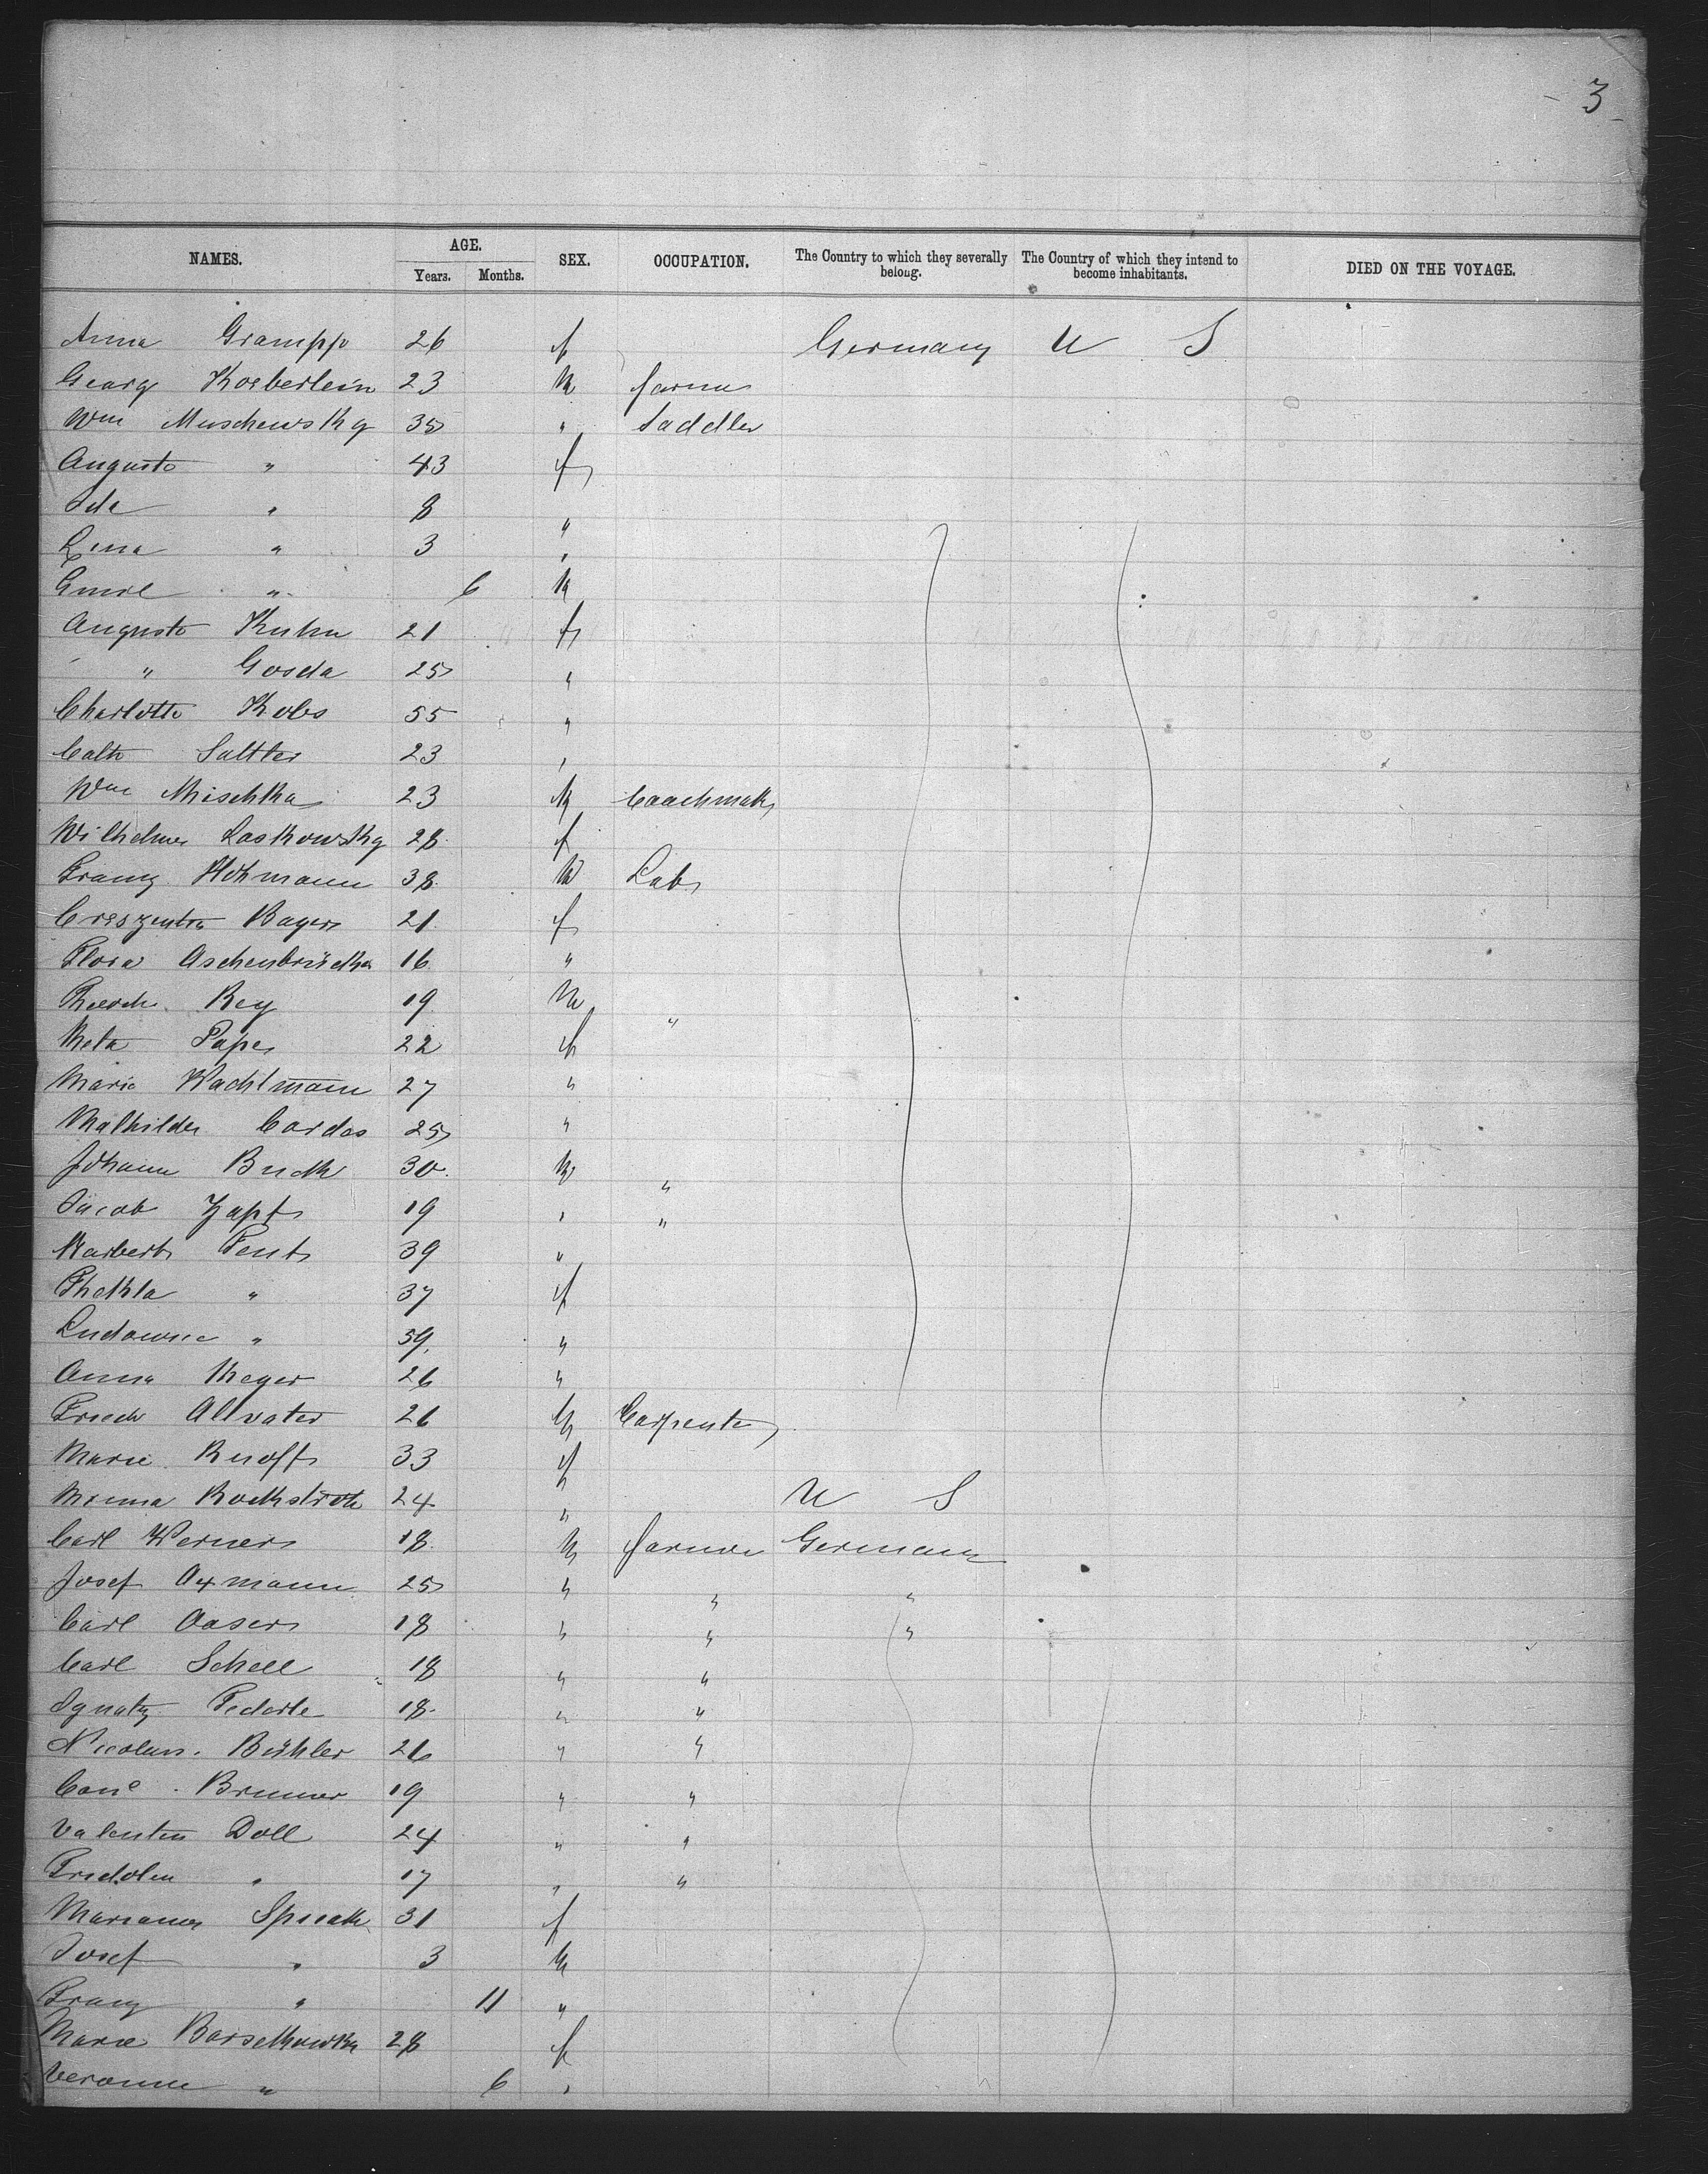 3
NAMES. AGE. Years. Months. SEX. OCCUPATION. The Country to which they severally belong. The Country of which they intend to become inhabitants. DIED ON THE VOYAGE.
Anna Grampp 26 f Germany U S
Georg Koeberlein 23 m farmer
Wm Muschewsky 35 " Saddler
Auguste " 43 f
Ida " 8 "
Lena " 3 "
Emil " 6 m
Auguste Kuhn 21 f
" Gosda 25 "
Charlotte Kobs 55 "
Cath Sattler 23 "
Wm Mischka 23 m Coachmak
Wilhelme Laskowsky 28 f
Franz Hohmann 38 m Lab
Creszentia Bayer 21 f
Flora Aschenbrücker 16 "
Rey 19 m "
Meta Pape 22 f
Marie Wachtmann 27 "
Mathilde Cordas 25 "
Johann Buck 30 m "
Jacob Zapf 19 " "
Pent 39 "
Thekla " 37 f
" 39 "
Anna Meyer 26 "
Friedr Altvater 26 m Carpenter
Marie Ruoff 33 f
Minna Rockstroh 24 " U S
Carl Werner 18 m farmer Germany
Josef Axmann 25 " " "
Carl Oaser 18 " " "
Carl Schell 18 " "
Ignatz Federle 18 " "
Nicolaus Bühler 26 " "
Brunner 19 " "
Valentin Doll 24 " "
Fridolin " 17 " "
Marianna 31 f
Josef " 3 m
Franz " 11 "
Marie 28 f
" 6 "